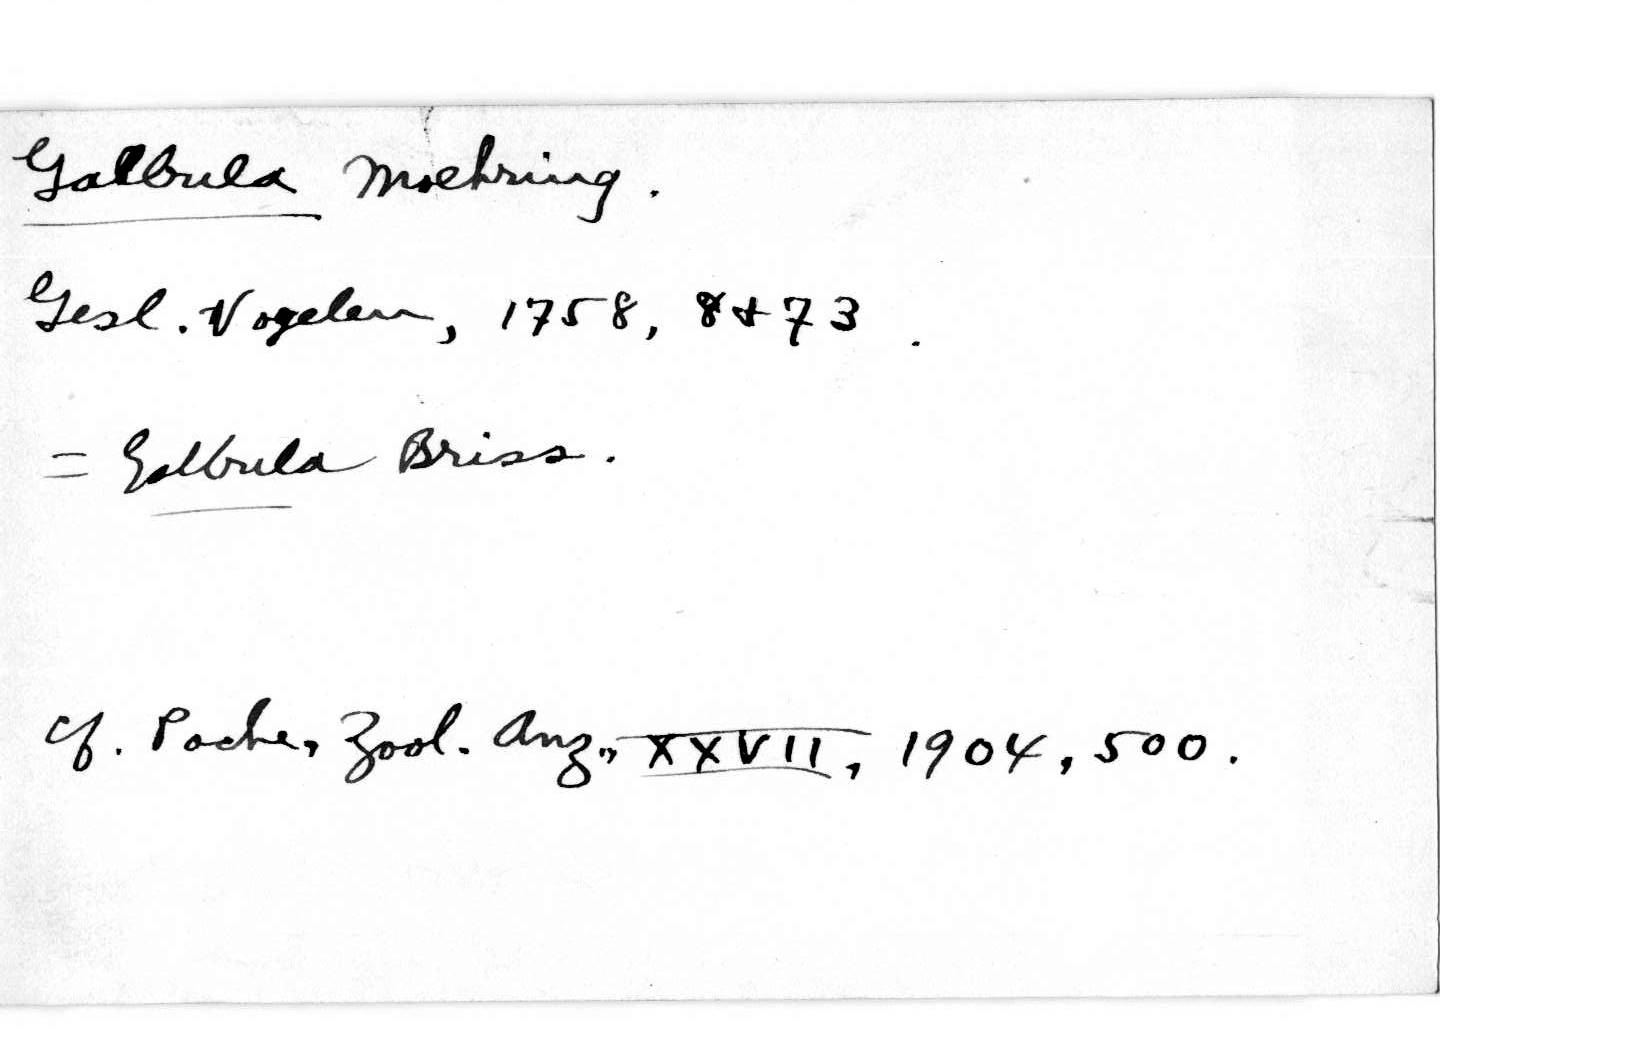 Galbula Moehring.
Gesl. Vogelen, 1758, 8 + 73.
= Galbula Briss.
cf. Poche, Zool. Anz., XXVII, 1904, 500.